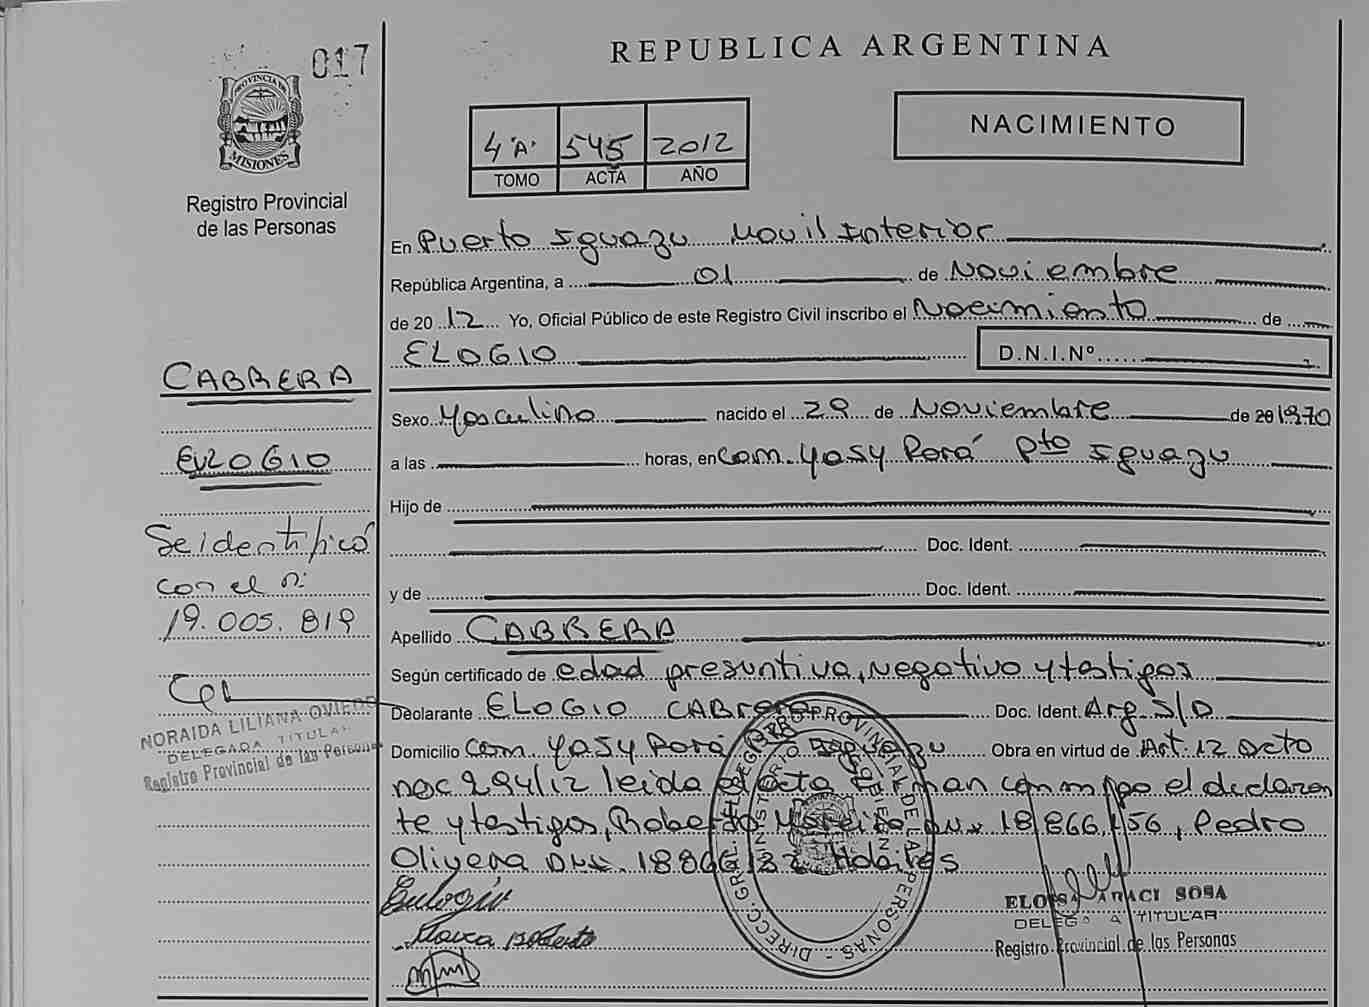 017
PROVINCIA DE
MISIONES
Registro Provincial
de las Personas
REPUBLICA ARGENTINA
4"A" 545 2012
TOMO ACTA AÑO
NACIMIENTO
En Puerto Iguazu Movil Interior
República Argentina, a 01 de Noviembre
de 20 12 Yo, Oficial Público de este Registro Civil inscribo el Nacimiento de
ELOGIO D.N.I.Nº
Sexo Masculino nacido el 29 de Noviembre de 1970
a las horas, en Com. Yasy Porá Pto Iguazu
Hijo de
Doc. Ident.
y de Doc. Ident.
Apellido CABRERA
Según certificado de edad presuntiva, negativo y testigos
Declarante ELOGIO CABRERA Doc. Ident. Arg. S/D
Domicilio Com. Yasy Porá Iguazu Obra en virtud de Art. 12 Dcto
nac 294/12 leida el acta firman conmigo el declaran
te y testigos, Roberto 18 866, Pedro
Olivera
CABRERA
EULOGIO
Se identificó
con el n:
19.005.819
NORAIDA LILIANA OVIEDO
DELEGADA TITULAR
Registro Provincial de las Personas
Eulogio
Roberto
DIRECC. GRAL. DEL REGISTRO PROVINCIAL DE LAS PERSONAS
MINISTERIO DE GOBIERNO
SOSA
DELEGADA TITULAR
Registro Provincial de las Personas